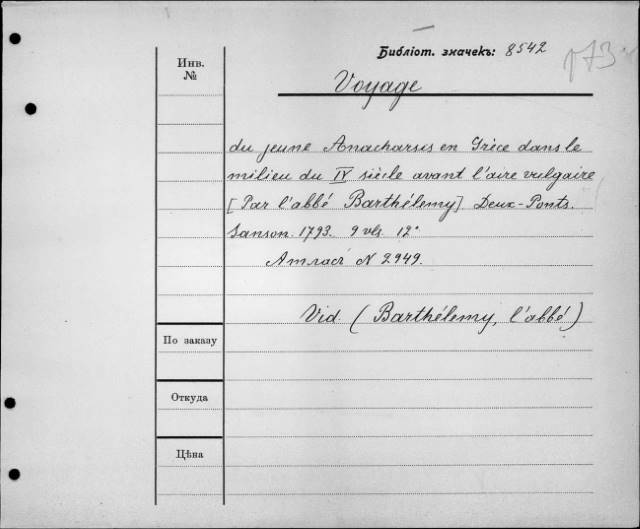 Библіот. значекъ: 8542
Инв.
№
Voyage
du jeune Anacharsis en Grèce dans le
milieu du IV siècle avant l'aire vulgaire
[Par l'abbé Barthélemy] Deux-Ponts.
Sanson. 1793. 9 vls. 12°
Атласъ N 2949.
Vid. (Barthélemy, l'abbé)
По заказу
Откуда
Цѣна